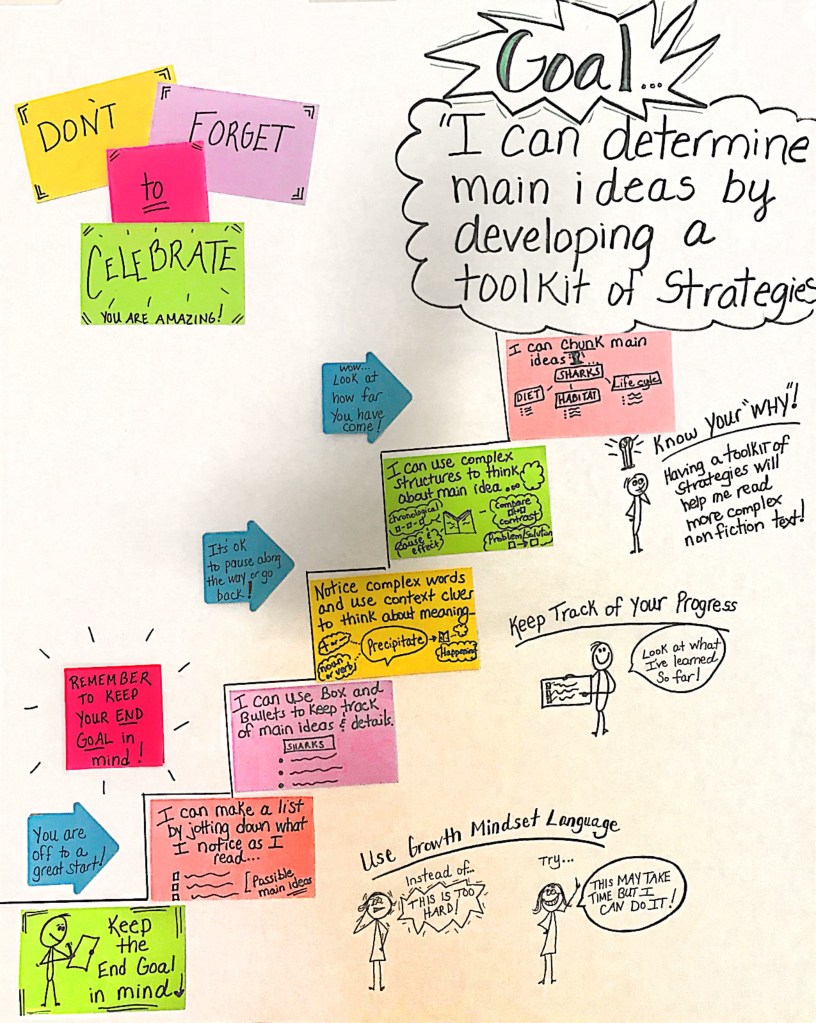 Goal...
"I can determine
main ideas by
developing a
toolkit of Strategies
DON'T
FORGET
to
CELEBRATE
YOU ARE AMAZING!
WOW...
Look at
how far
You have
come!
I can chunk main
ideas
SHARKS
DIET
HABITAT
Life cycle
Know Your "WHY"!
Having a toolkit of
Strategies will
help me read
more complex
nonfiction text!
I can use complex
structures to think
about main idea...
Chronological
Compare
contrast
cause &
effect
Problem/Solution
It's OK
to pause along
the way or go
back!
Notice complex words
and use context clues
to think about meaning-
Precipitate
noun or verb
Happening
Keep Track of Your Progress
Look at what
I've learned
So far!
REMEMBER
TO KEEP
YOUR END
GOAL in
mind!
I can use Box and
Bullets to keep track
of main ideas & details.
SHARKS
You are
off to a
great start!
I can make a list
by jotting down what
I notice as I
read...
Possible
main ideas
Use Growth Mindset Language
Instead of...
THIS IS TOO
HARD!
Try...
THIS MAY TAKE
TIME BUT I
CAN DO IT!
Keep
the
End Goal
in mind